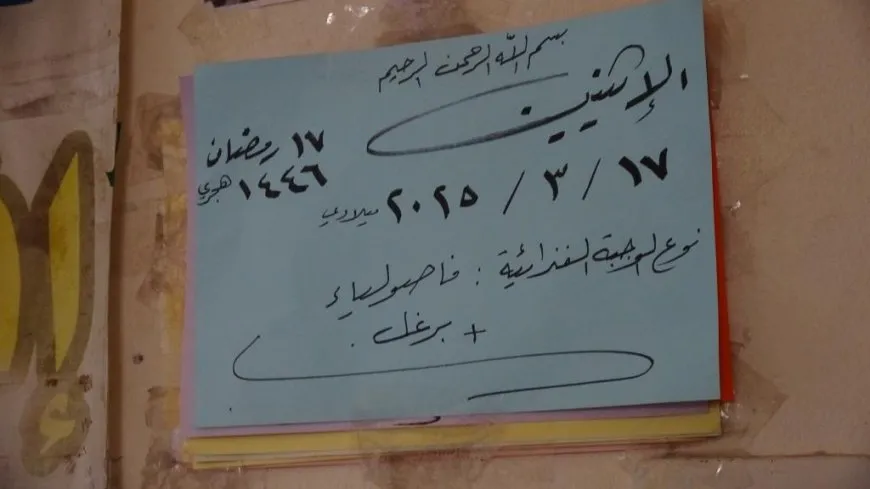 بسم الله الرحمن الرحيم
الإثنين
١٧ رمضان
١٤٤٦ هجري
١٧ / ٣ / ٢٠٢٥ ميلادي
نوع الوجبة الغذائية : فاصولياء
+ برغل .